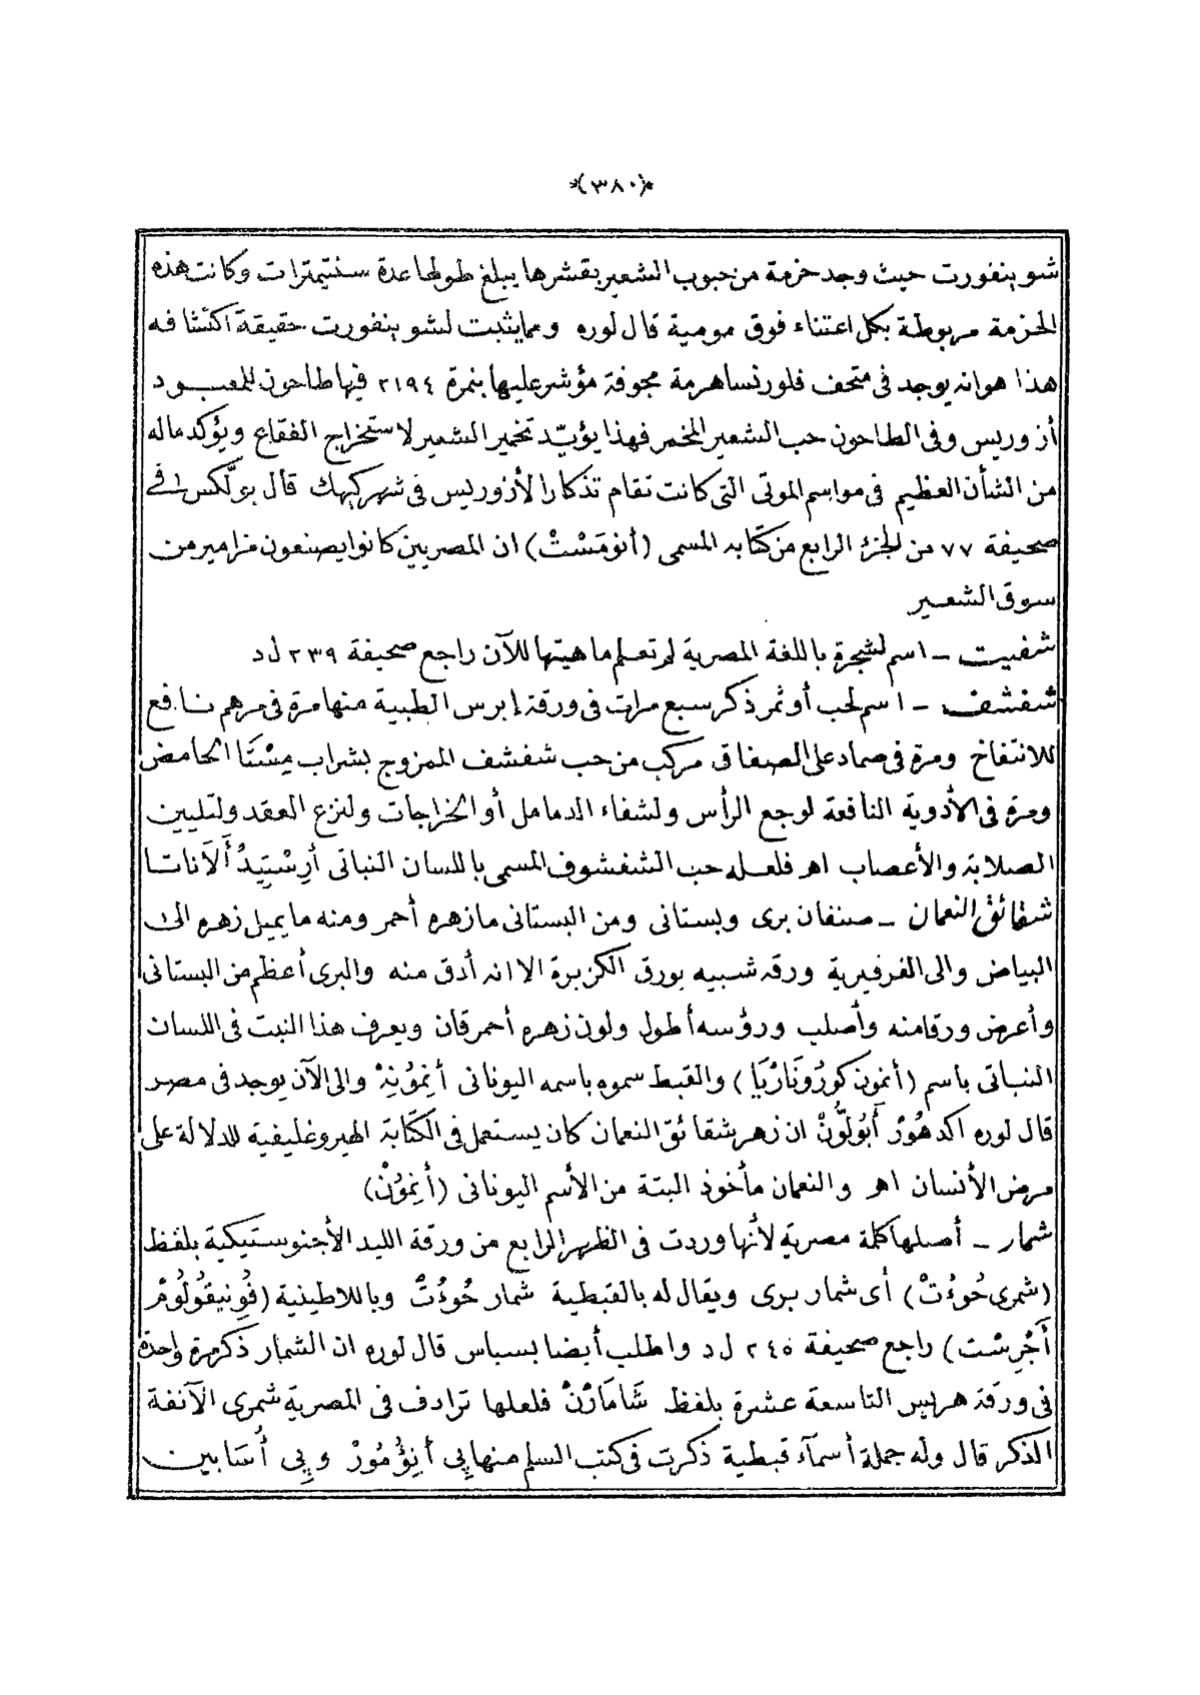 *(٣٨٠)*
شوينفورت حيث وجد حزمة من حبوب الشعير بقشرها يبلغ طولها عدة سنتيمترات وكانت هذه
الحزمة مربوطة بكل اعتناء فوق مومية قال لوره ومما يثبت لشوينفورت حقيقة اكتشافه
هذا هو انه يوجد فى متحف فلورنسا هرمة مجوفة مؤشر عليها بنمرة ٢١٩٤ فيها طاحون للمعبود
أزوريس وفى الطاحون حب الشعير المخمر فهذا يؤيّد تخمير الشعير لاستخراج الفقاع ويؤكد ماله
من الشأن العظيم فى مواسم الموتى التى كانت تقام تذكارا لأزوريس فى شهر كيهك قال بولّكس فى
صحيفة ٧٧ من الجزء الرابع من كتابه المسمى (أنومَسْتْ) ان المصريين كانوا يصنعون مزامير من
سوق الشعير
شفيت - اسم لشجرة باللغة المصرية لم تعلم ماهيتها للآن راجع صحيفة ٢٣٩ ل د
شفشف - اسم لحب أو ثمر ذكر سبع مرات فى ورقة إبرس الطبية منها مرة فى مرهم نافع
للانتفاخ ومرة فى ضماد على الصفاق مركب من حب شفشف الممزوج بشراب مِسْتَا الحامض
ومرة فى الأدوية النافعة لوجع الرأس ولشفاء الدمامل أو الخراجات ولنزع العقد ولتليين
الصلابة والأعصاب اهـ فلعله حب الشفشوف المسمى باللسان النباتى أَرِسْتِيدْ أَلَاناتا
شقائق النعمان - صنفان برى وبستانى ومن البستانى مازهره أحمر ومنه مايميل زهره الى
البياض والى الفرفيرية ورقه شبيه بورق الكزبرة الا انه أدق منه والبرى أعظم من البستانى
وأعرض ورقا منه وأصلب ورؤسه أطول ولون زهره أحمر قان ويعرف هذا النبت فى اللسان
النباتى باسم (أنمون كورُونَارْيَا) والقبط سموه باسمه اليونانى أَنِمُونِهْ والى الآن يوجد فى مصر
قال لوره اكد هُورْ أَبُولُّونْ ان زهر شقائق النعمان كان يستعمل فى الكتابة الهيروغليفية للدلالة على
مرض الأنسان اهـ والنعمان مأخوذ البتة من الأسم اليونانى (أَنِمُونْ)
شمار - أصلها كلمة مصرية لأنها وردت فى الظهر الرابع من ورقة الليد الأجنوستيكية بلفظ
(شمرى حُوءُتْ) أى شمار برى ويقال له بالقبطية شمار حُوءُتْ وباللاطينية (فُونيقُولُومْ
أَجْرِسْتْ) راجع صحيفة ٢٤٥ ل د واطلب أيضا بسباس قال لوره ان الشمار ذكر مرة واحدة
فى ورقة هريس التاسعة عشرة بلفظ شَامَارْنْ فلعلها ترادف فى المصرية شمرى الآنفة
الذكر قال وله جملة أسمآء قبطية ذكرت فى كتب السلم منها پى أَنِؤْمُورْ وپى أُسَابين